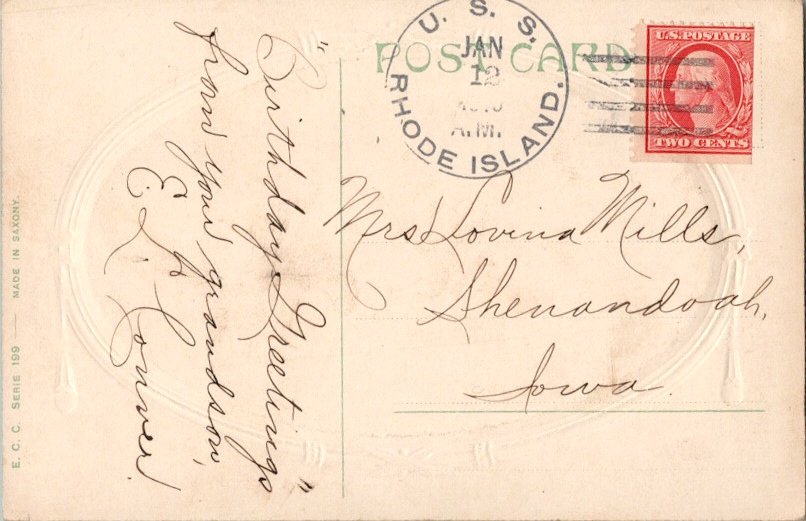 POST CARD
U. S. S.
JAN
12
A.M.
RHODE ISLAND.
U.S. POSTAGE
TWO CENTS
"Birthday Greetings"
from your grandson,
E. L. Conver.
Mrs Lovina Mills,
Shenandoah,
Iowa.
E. C. C. SERIE 199 — MADE IN SAXONY.